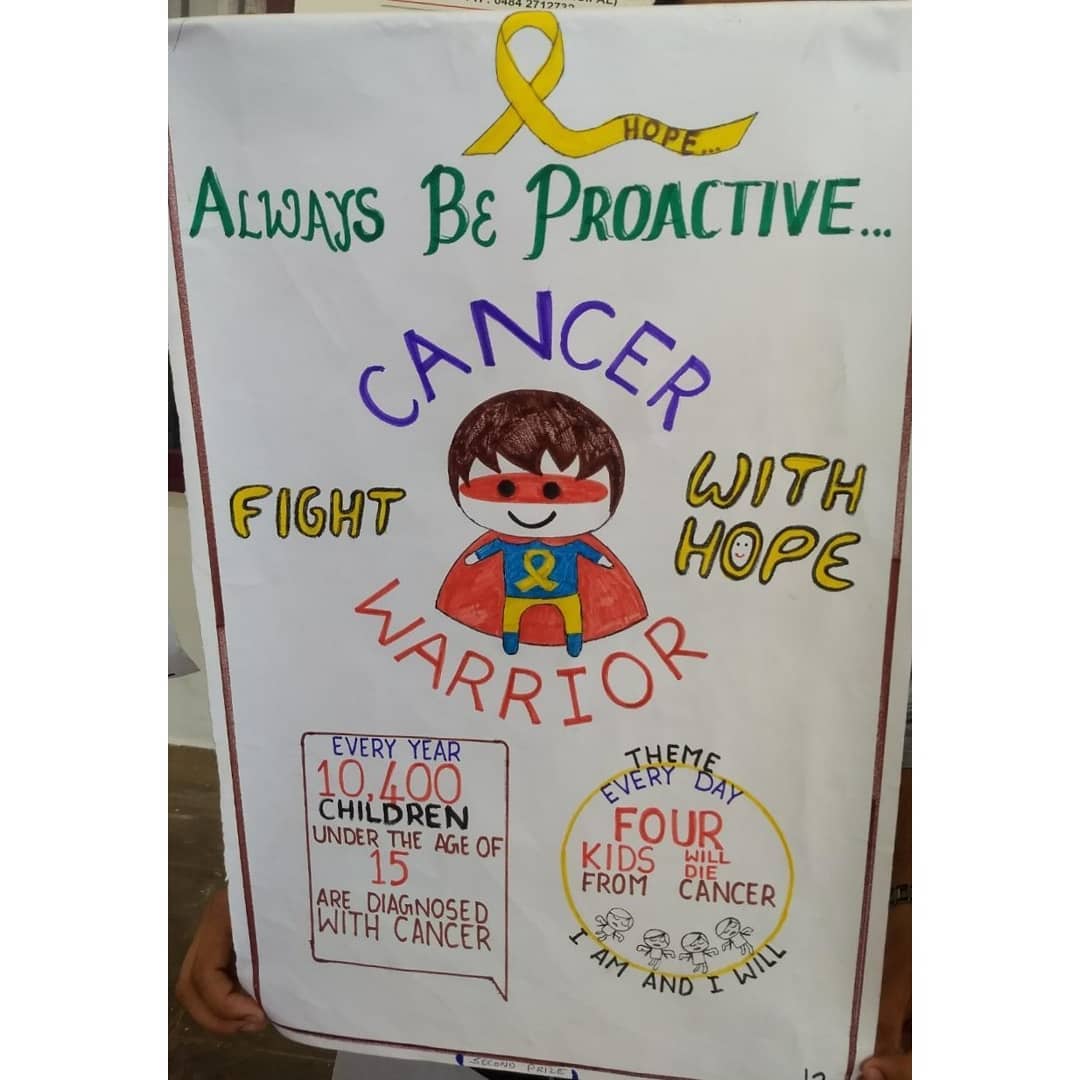 0484 2712732
HOPE...
ALWAYS BE PROACTIVE...
CANCER
FIGHT
WITH
HOPE
WARRIOR
EVERY YEAR
10,400
CHILDREN
UNDER THE AGE OF
15
ARE DIAGNOSED
WITH CANCER
THEME
EVERY DAY
FOUR
KIDS WILL DIE
FROM CANCER
I AM AND I WILL
SECOND PRIZE
12